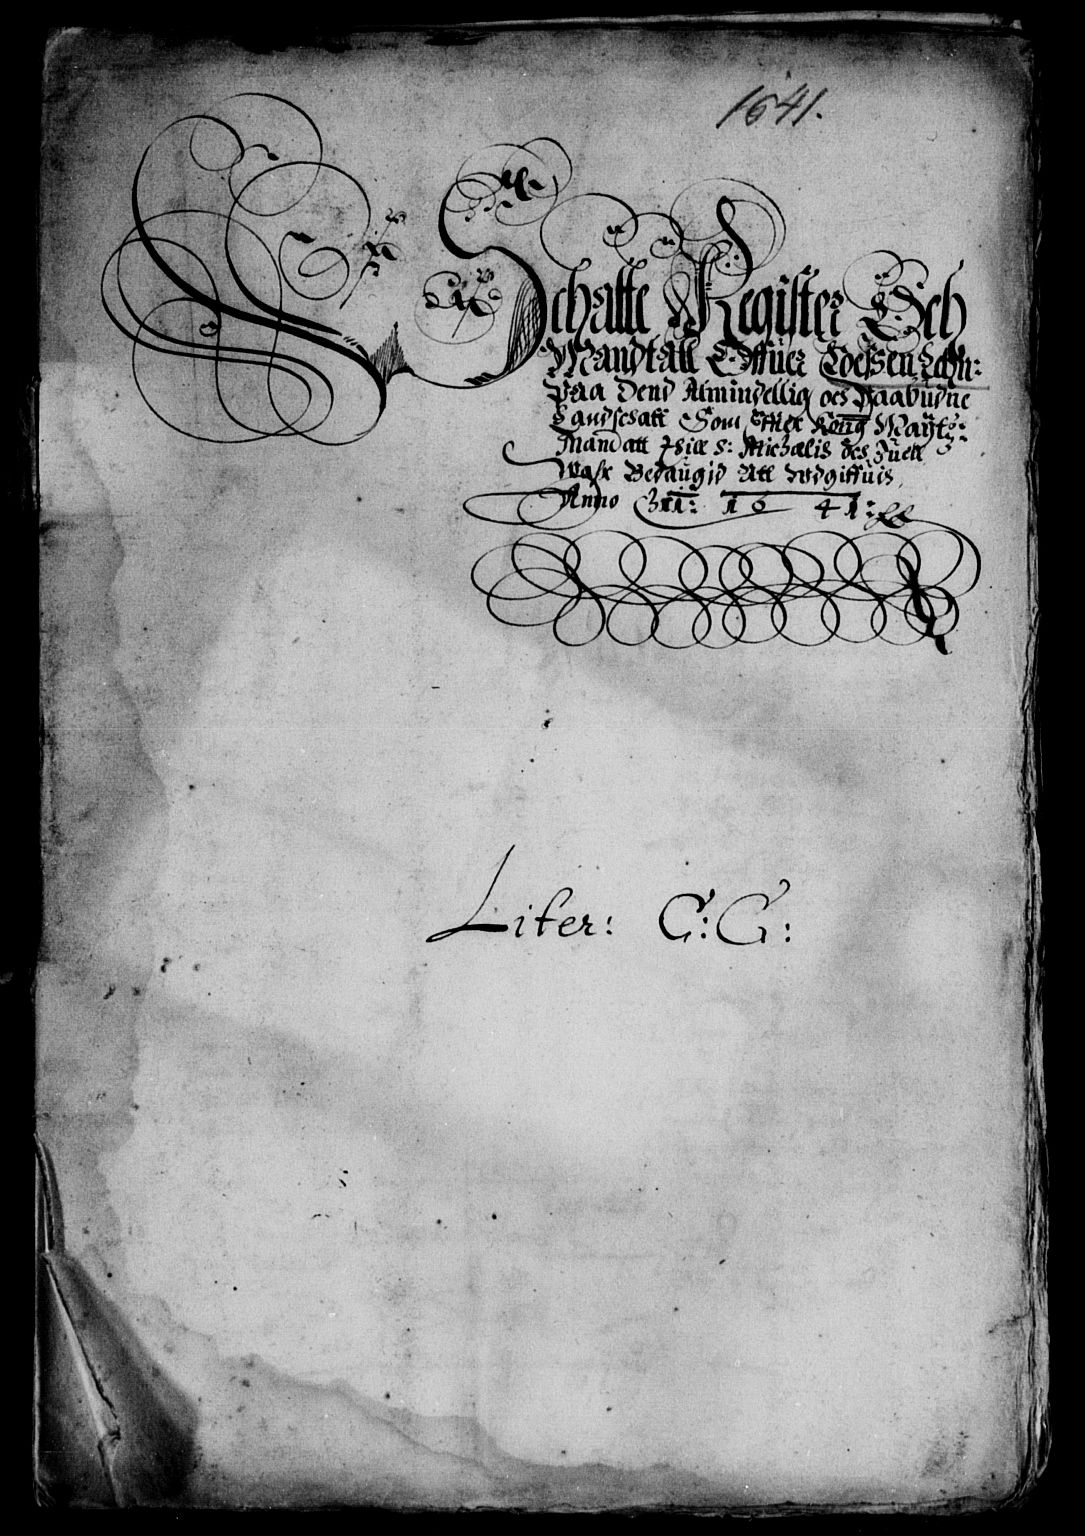 1641.
Schatte Register Och
Mandtall Offuer Toessen Lehn:
Paa Dend Almindellig och Paabudne
Landschatt Som Effter Kong: Maytz:
Mandatt Thill S: Michaelis och Juell
Waar Beraugid Att Udgiffuis,
Anno Xti: 1641:
Liter: C: G: